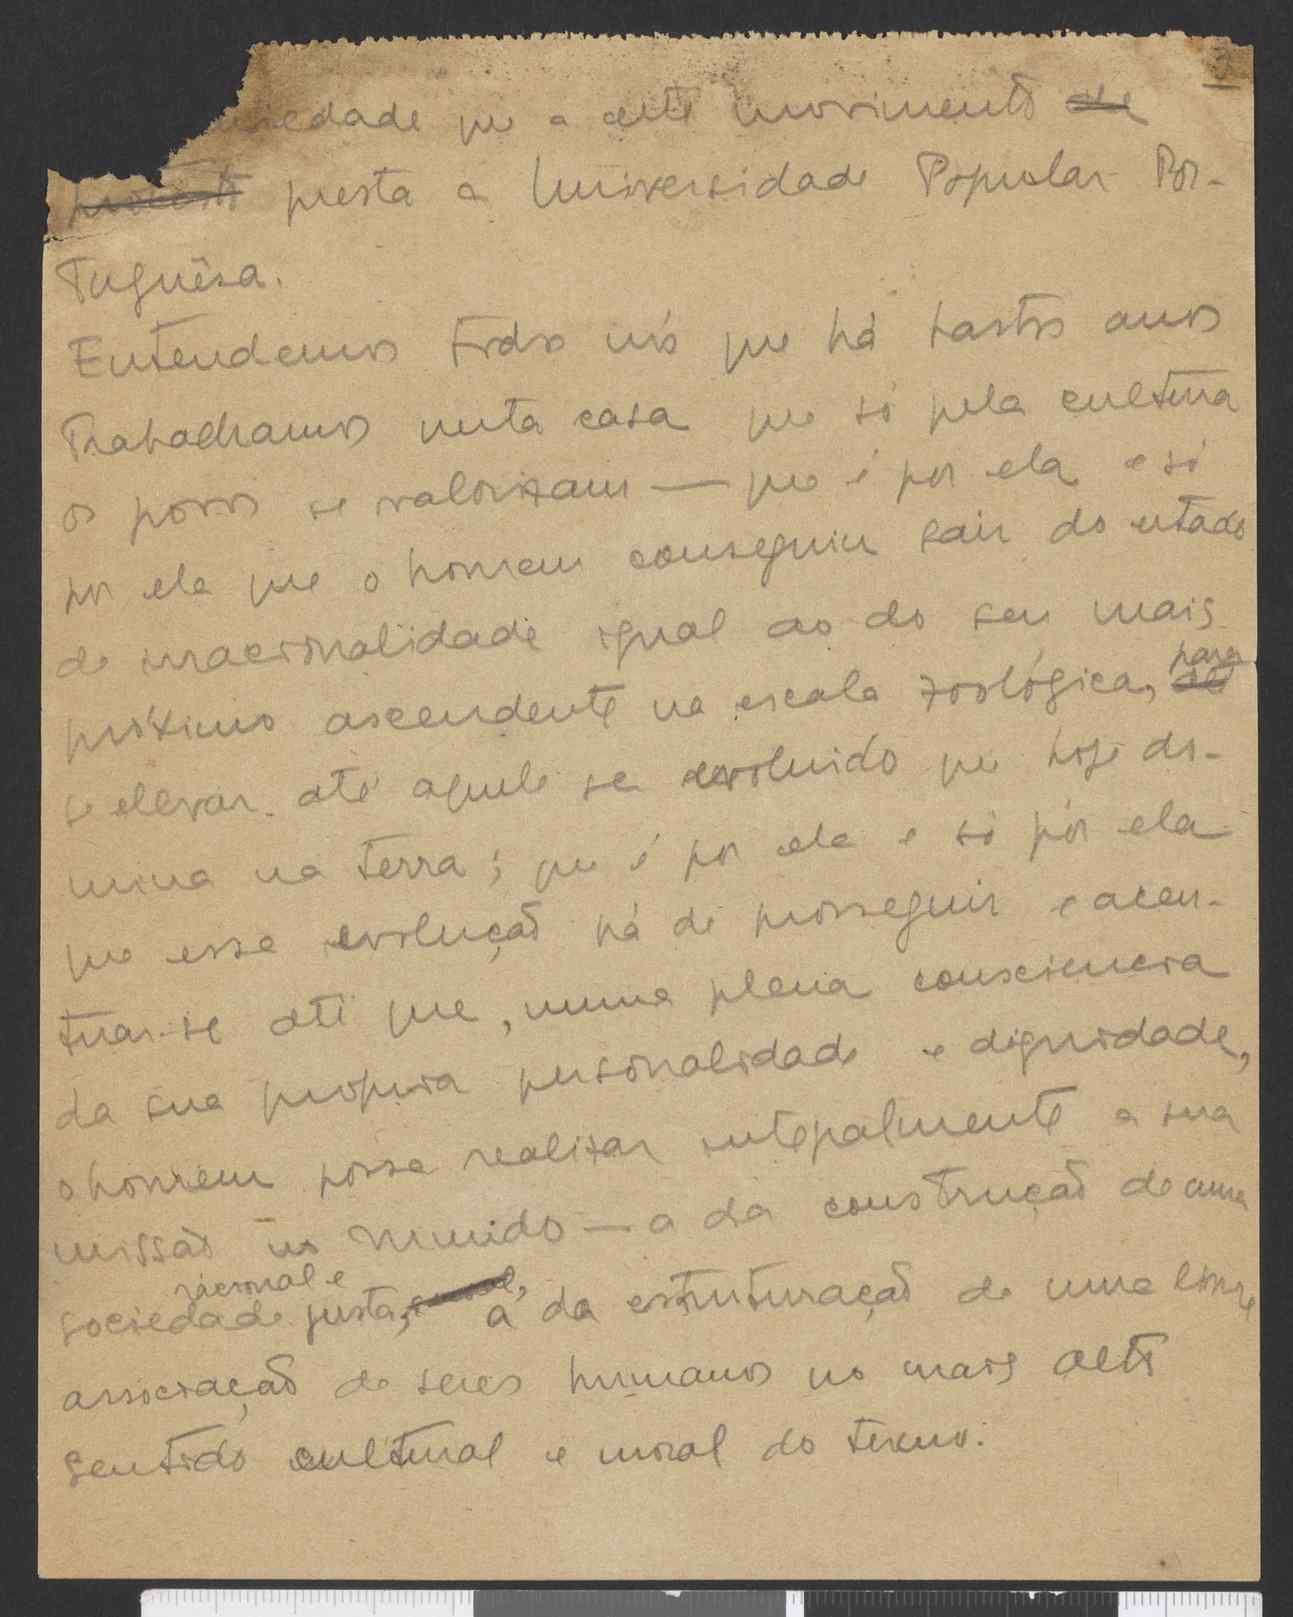 3
iedade que a este movimento de
protesto presta a Universidade Popular Por-
tuguêsa.
Entendemos todos nós que há bastos anos
trabalhamos nesta casa que só pela cultura
os povos se valorizam — que é por ela e só
por ela que o homem conseguiu sair do estado
de irracionalidade igual ao do seu mais
próximo ascendente na escala zoológica, de para
se elevar até aquele ser evoluido que hoje do-
mina na terra; que é por ela e só por ela
que essa evolução há de prosseguir e acen-
tuar-se até que, numa plena consciencia
da sua propria personalidade e dignidade,
o homem possa realizar integralmente a sua
missão no mundo — a da construção de uma
sociedade racional e justa, a da estruturação de uma livre
associação de seres humanos no mais alto
sentido cultural e moral do termo.